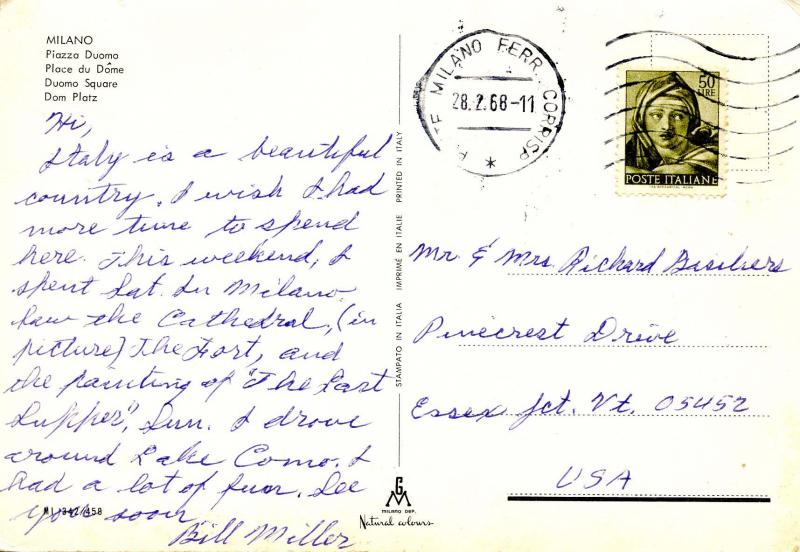 MILANO
Piazza Duomo
Place du Dôme
Duomo Square
Dom Platz
Hi,
Italy is a beautiful
country. I wish I had
more time to spend
here. This weekend, I
spent Sat. In Milano.
Saw the Cathedral, (in
picture) The Fort, and
the painting of "The Last
Supper", Sun. I drove
around Lake Como. I
had a lot of fun. See
you soon
Bill Miller
MI 342/458
STAMPATO IN ITALIA IMPRIMÉ EN ITALIE PRINTED IN ITALY
GM
MILANO DEP.
Natural colours
MILANO FERR. CORRISP
28.2.68-11
50
LIRE
POSTE ITALIANE
Mr & Mrs Richard
Pinecrest Drive
Essex Jct. Vt. 05452
USA